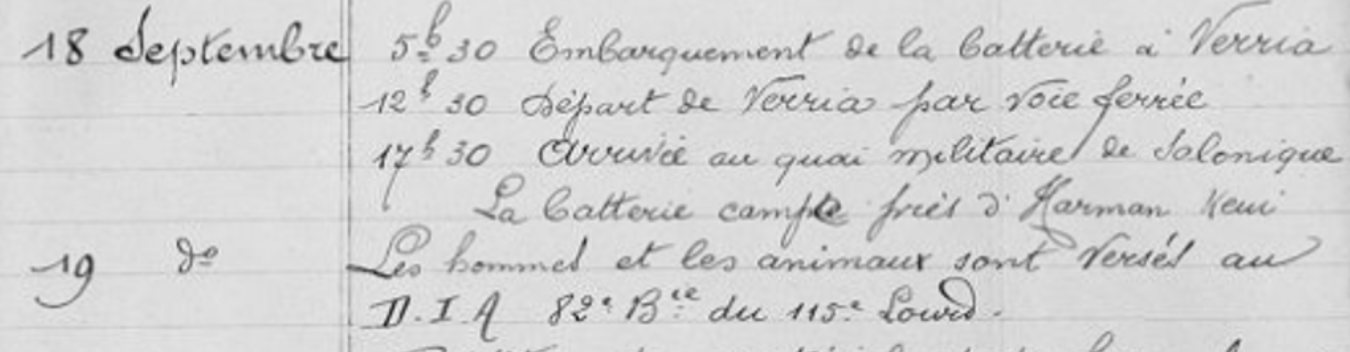 18 Septembre 5h 30 Embarquement de la batterie à Verria
12h 30 Départ de Verria par voie ferrée
17h 30 Arrivée au quai militaire de Salonique
La batterie campe près d'Harman Keui
19 do Les hommes et les animaux sont versés au
D.I.A 82e Bie du 115e Lourd.